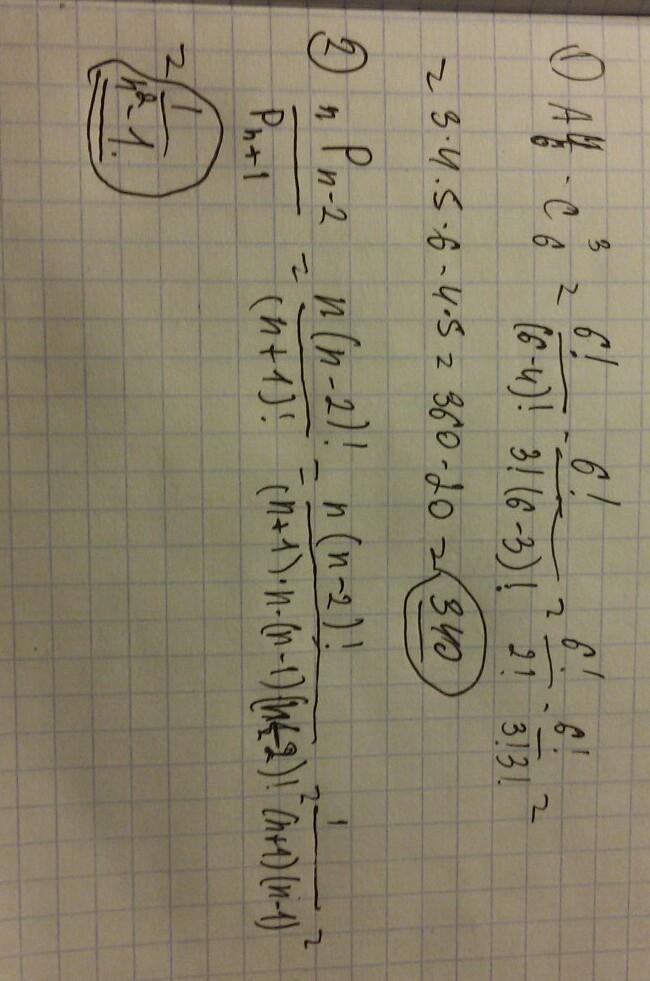 ① A⁴₆ - C³₆ = 6!/(6-4)! - 6!/3!(6-3)! = 6!/2! - 6!/3!3! =
= 3·4·5·6 - 4·5 = 360 - 20 = 340
② nPₙ₋₂/Pₙ₊₁ = n(n-2)!/(n+1)! = n(n-2)!/(n+1)·n·(n-1)(n-2)! = 1/(n+1)(n-1) =
= 1/n²-1.